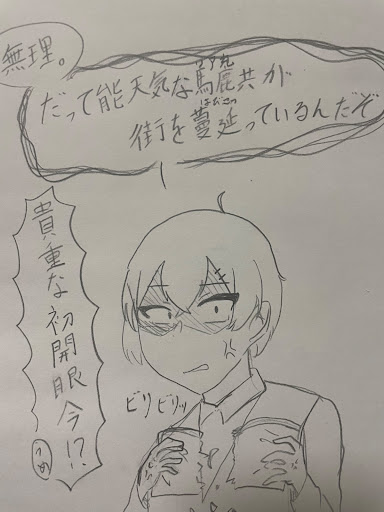 無理。
だって能天気な馬鹿共が
街を蔓延っているんだぞ
はびこっ
貴重な初開眼今!?
ビリビリッ